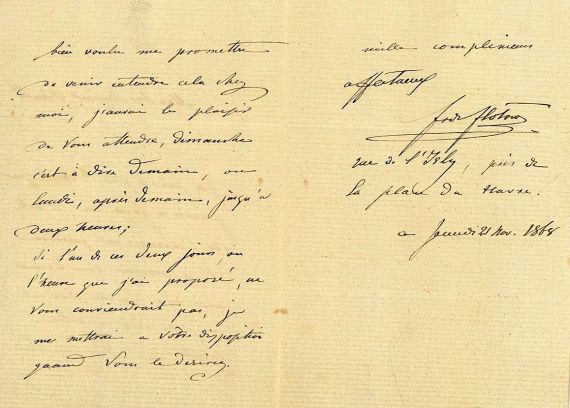 bien voulu me promettre
de venir entendre cela chez
moi, j'aurai le plaisir
de vous attendre, dimanche
c'est à dire demain, ou
lundi, après demain, jusqu'à
deux heures;
si l'un de ces deux jours, ou
l'heure que j'ai proposé, ne
vous conviendrait pas, je
me mettrai a votre disposition
quand vous le désirez.
mille complimens
affectueux
fr de flotow
rue de l'Isly, près de
la place du Havre.
21 Nov. 1868